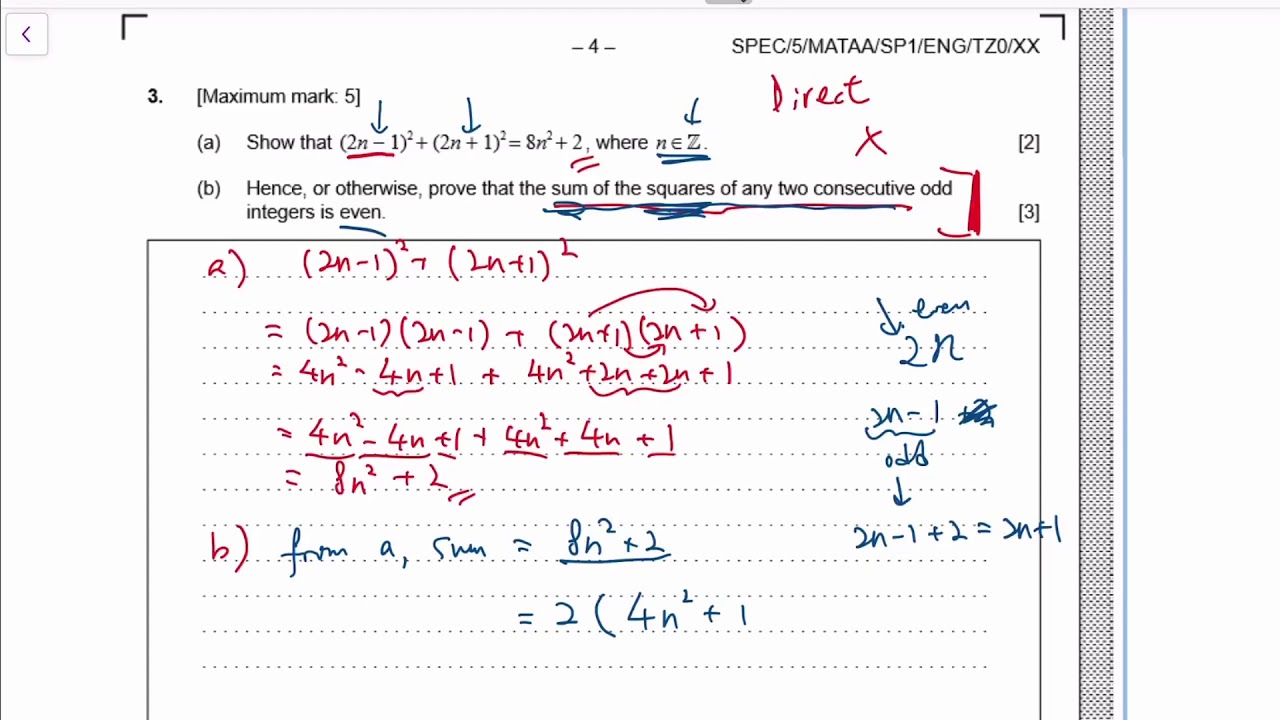 – 4 –
SPEC/5/MATAA/SP1/ENG/TZ0/XX
3. [Maximum mark: 5]
Direct
x
(a) Show that (2n − 1)² + (2n + 1)² = 8n² + 2, where n ∈ ℤ. [2]
(b) Hence, or otherwise, prove that the sum of the squares of any two consecutive odd
integers is even. [3]
a) (2n-1)² + (2n+1)²
= (2n-1)(2n-1) + (2n+1)(2n+1)
= 4n² - 4n+1 + 4n²+2n+2n+1
= 4n² - 4n +1 + 4n² + 4n + 1
= 8n² + 2
even
2n
2n-1
odd
2n-1+2 = 2n+1
b) from a, sum = 8n² + 2
= 2 ( 4n² + 1